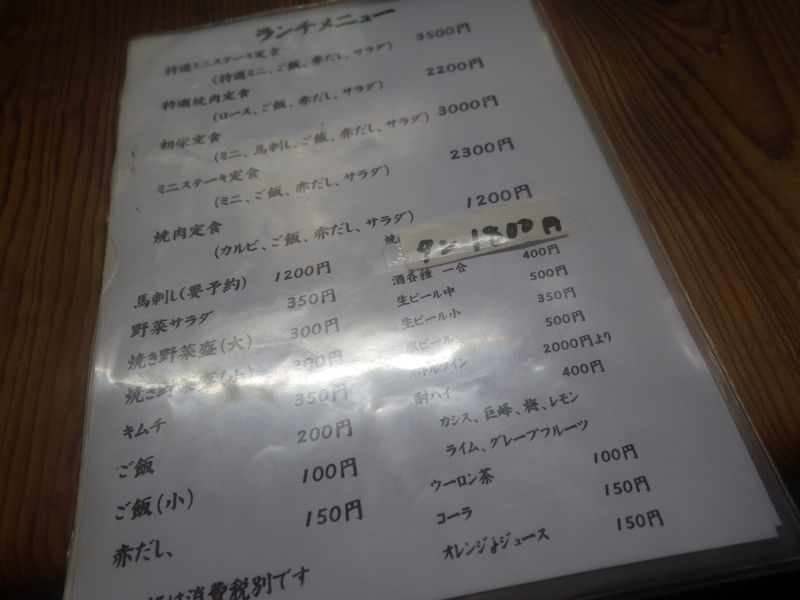 ランチメニュー
特選ミニステーキ定食 3500円
(特選ミニ、ご飯、赤だし、サラダ)
特選焼肉定食 2200円
(ロース、ご飯、赤だし、サラダ)
初栄定食 3000円
(ミニ、馬刺し、ご飯、赤だし、サラダ)
ミニステーキ定食 2300円
(ミニ、ご飯、赤だし、サラダ)
焼肉定食 1200円
(カルビ、ご飯、赤だし、サラダ)
馬刺し(要予約) 1200円
野菜サラダ 350円
焼き野菜盛(大) 300円
焼き野菜盛(小)
キムチ 350円
ご飯 200円
ご飯(小) 100円
赤だし、 150円
は消費税別です
焼
タン 1800円
酒各種 一合 400円
生ビール中 500円
生ビール小 350円
ビール 500円
ボトルワイン 2000円より
酎ハイ 400円
カシス、巨峰、梅、レモン
ライム、グレープフルーツ
ウーロン茶 100円
コーラ 150円
オレンジよジュース 150円